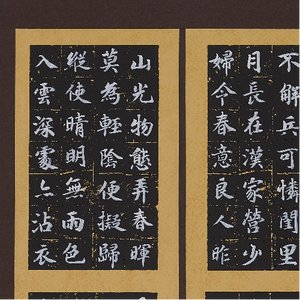 不解兵可憐閨里
月長在漢家營少
婦今春意良人昨
山光物態弄春暉
莫為輕陰便擬歸
縱使晴明無雨色
入雲深處亦沾衣